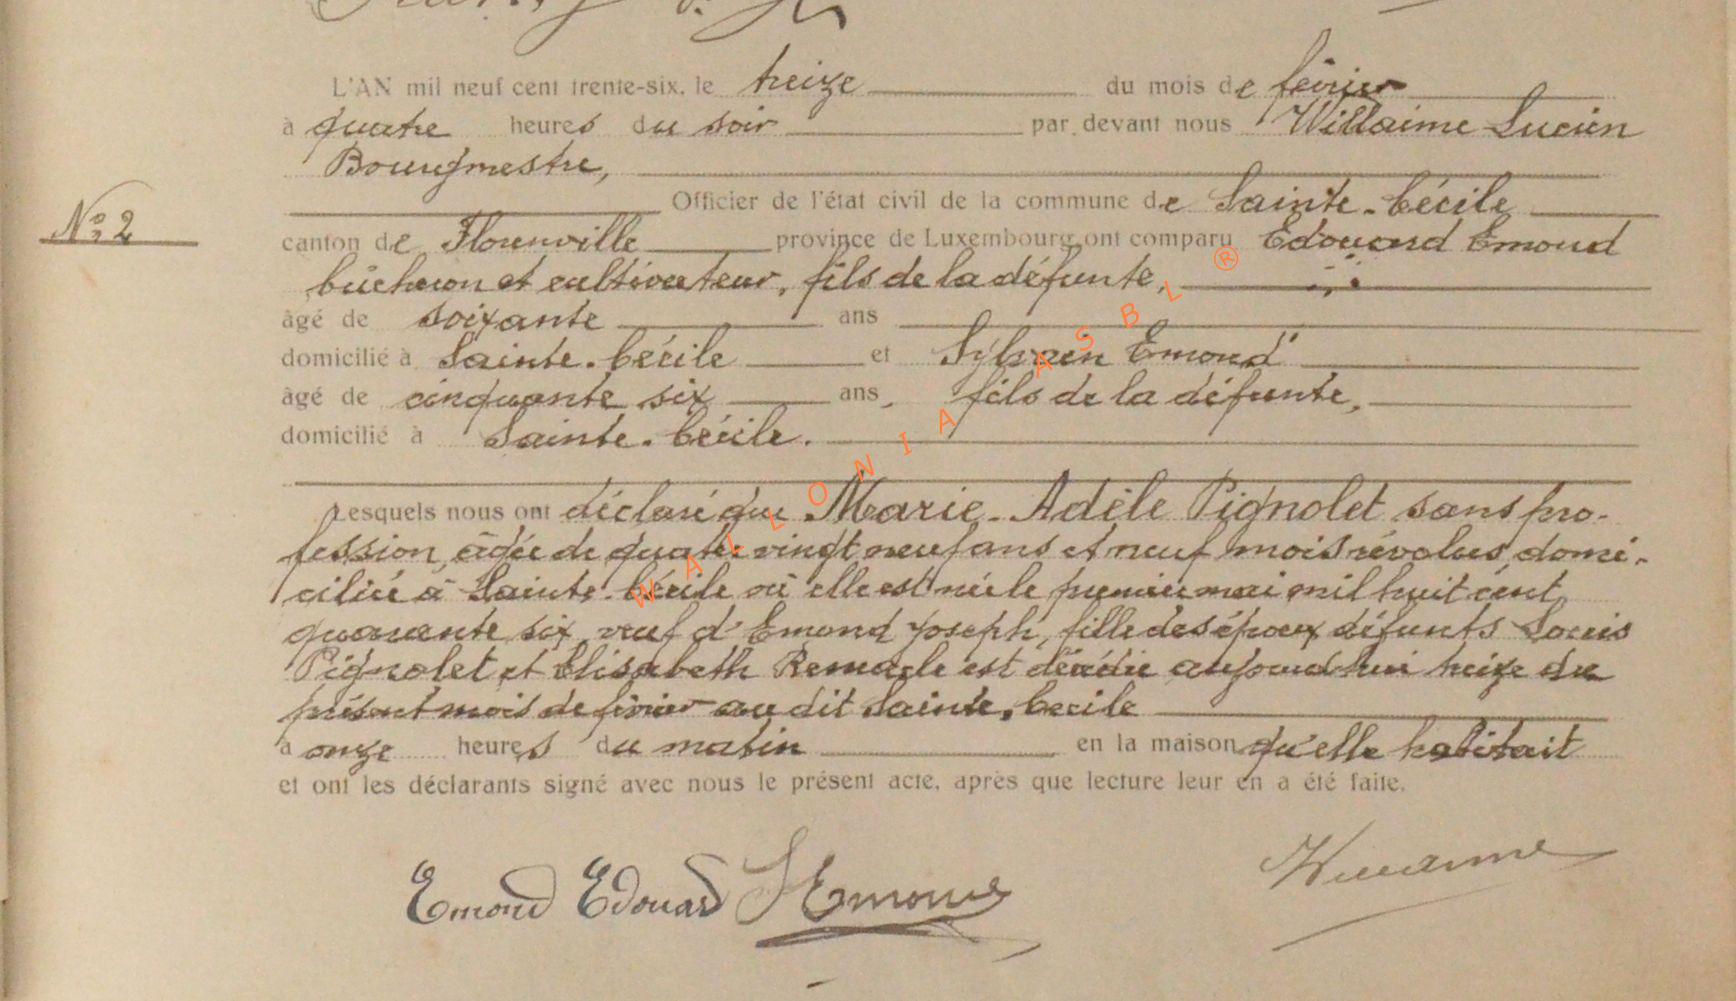 L'AN mil neuf cent trente-six, le treize du mois de février
à quatre heures du soir par devant nous Willaime Lucien
Bourgmestre,
Officier de l'état civil de la commune de Sainte-Cécile
N° 2
canton de Florenville province de Luxembourg ont comparu Edouard Emond
bûcheron et cultivateur, fils de la défunte,
âgé de soixante ans
domicilié à Sainte-Cécile et Sylvain Emond
âgé de cinquante six ans, fils de la défunte,
domicilié à Sainte-Cécile.
Lesquels nous ont déclaré que Marie-Adèle Pignolet sans pro-
fession, âgée de quatre vingt neuf ans et neuf mois révolus, domi-
ciliée à Sainte-Cécile où elle est née le premier mai mil huit cent
quarante six, veuf d'Emond Joseph, fille des époux défunts Louis
Pignolet et Elisabeth Remacle est décédée aujourd'hui treize du
présent mois de février au dit Sainte-Cecile
à onze heures du matin en la maison qu'elle habitait
et ont les déclarants signé avec nous le présent acte, après que lecture leur en a été faite.
Emond Edouard S Emond Willaime
WALLONIA ASBL ®